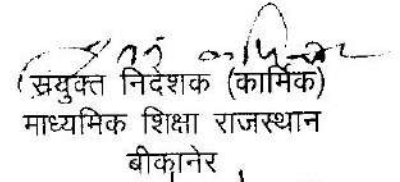 (संयुक्त निदेशक (कार्मिक)
माध्यमिक शिक्षा राजस्थान
बीकानेर